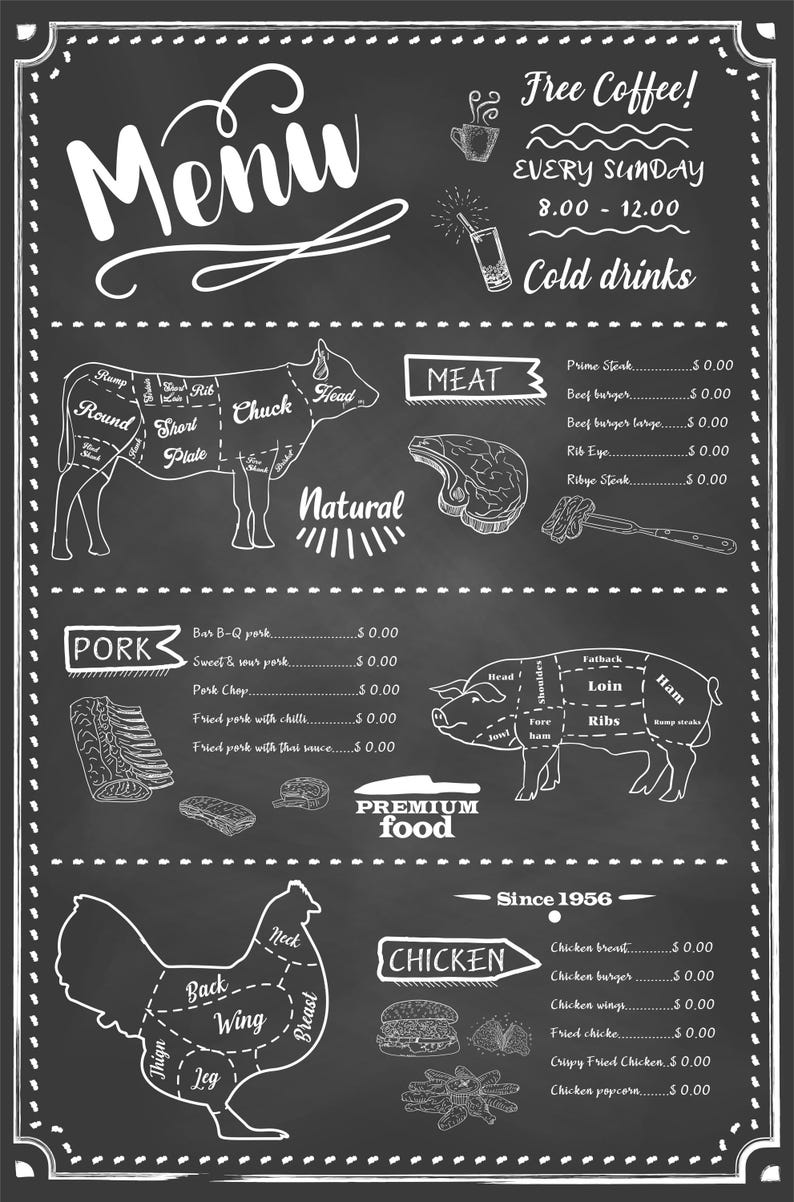 Menu
Free Coffee!
EVERY SUNDAY
8.00 - 12.00
Cold drinks
Rump
Sirloin
Short Loin
Rib
Chuck
Head
Round
Short Plate
Hind Shank
Flank
Fore Shank
Brisket
Natural
MEAT
Prime Steak..............$ 0.00
Beef burger..............$ 0.00
Beef burger large......$ 0.00
Rib Eye....................$ 0.00
Ribye Steak..............$ 0.00
PORK
Bar B-Q pork....................$ 0.00
Sweet & sour pork................$ 0.00
Pork Chop.........................$ 0.00
Fried pork with chilli...........$ 0.00
Fried pork with thai sauce......$ 0.00
Head
Shouldes
Fatback
Loin
Ham
Jowl
Fore ham
Ribs
Rump steaks
PREMIUM
food
Since 1956
Neck
Back
Wing
Breast
Thign
Leg
CHICKEN
Chicken breast...........$ 0.00
Chicken burger ..........$ 0.00
Chicken wings............$ 0.00
Fried chicke..............$ 0.00
Crispy Fried Chicken..$ 0.00
Chicken popcorn........$ 0.00